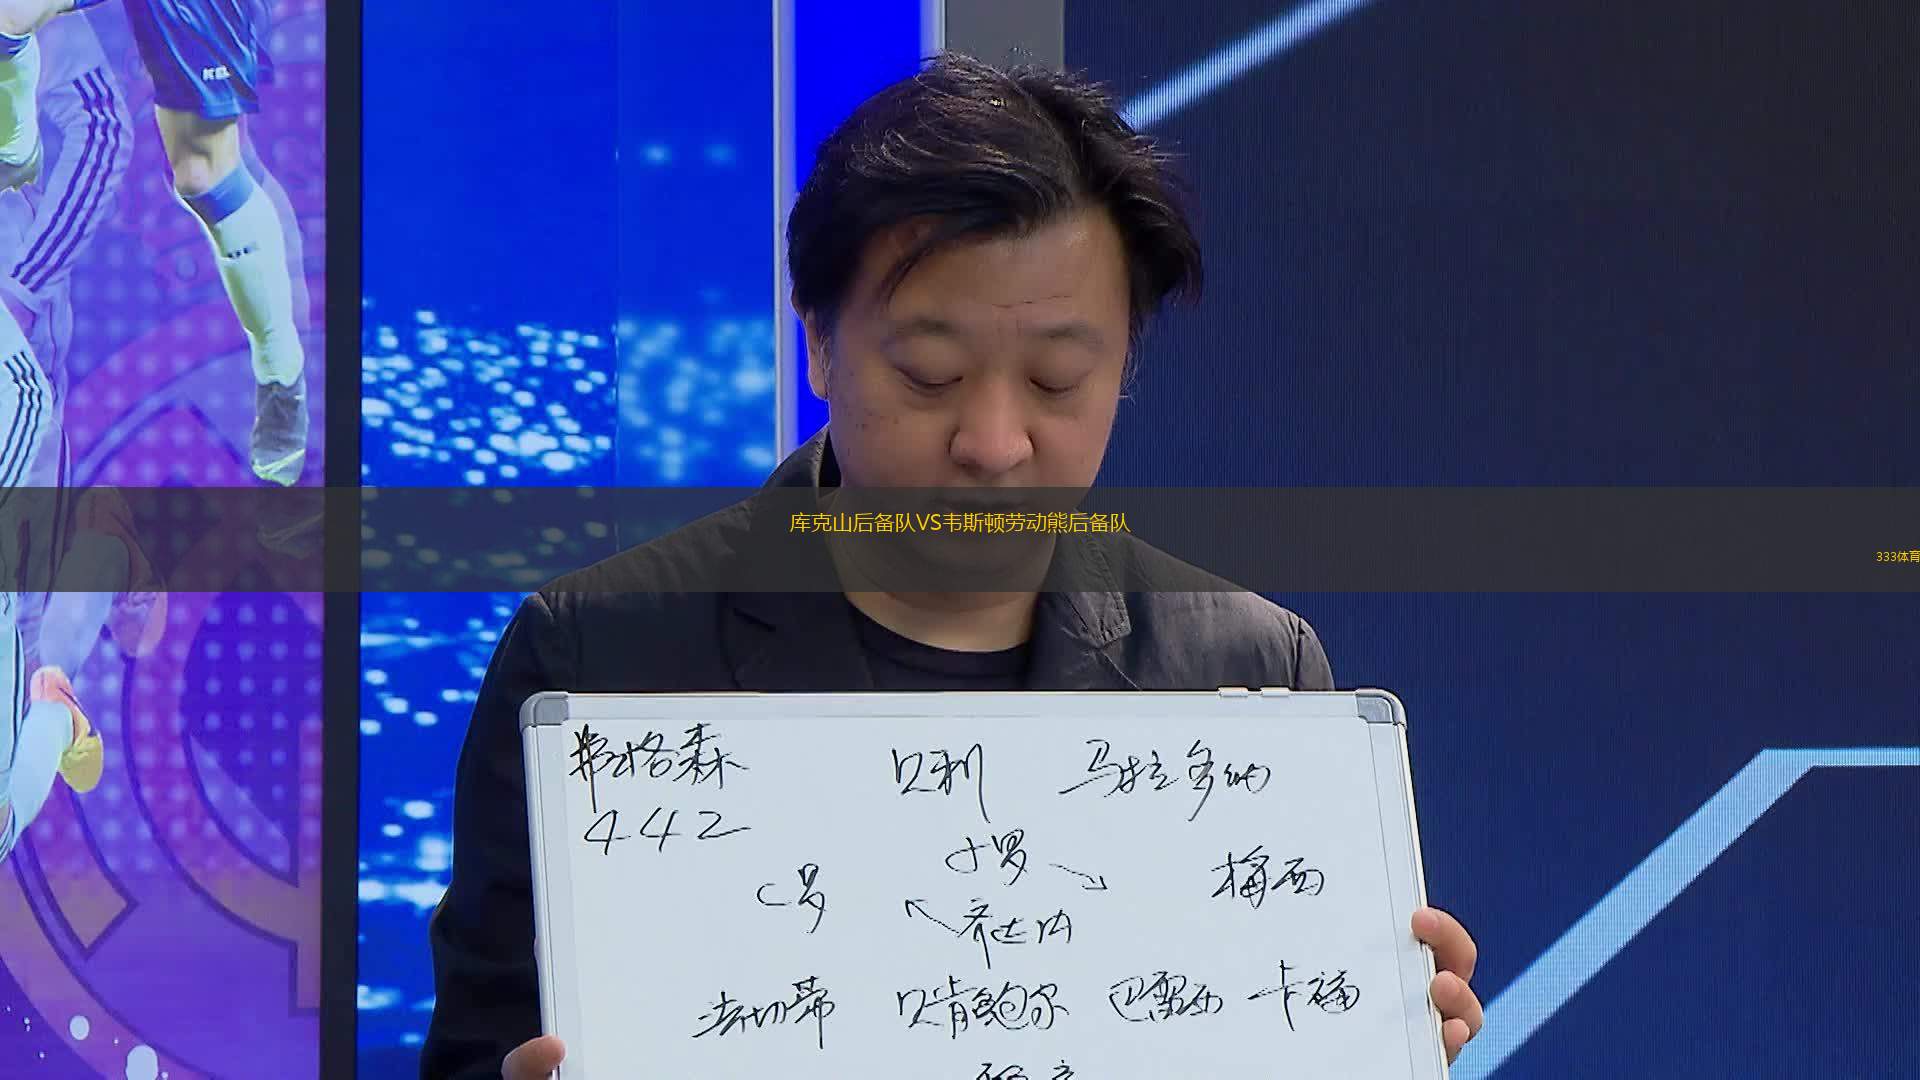 KEL
库克山后备队VS韦斯顿劳动熊后备队
333体育
弗格森 贝利 马拉多纳
442
小罗
C罗 梅西
齐达内
法切蒂 贝肯鲍尔 巴雷西 卡福